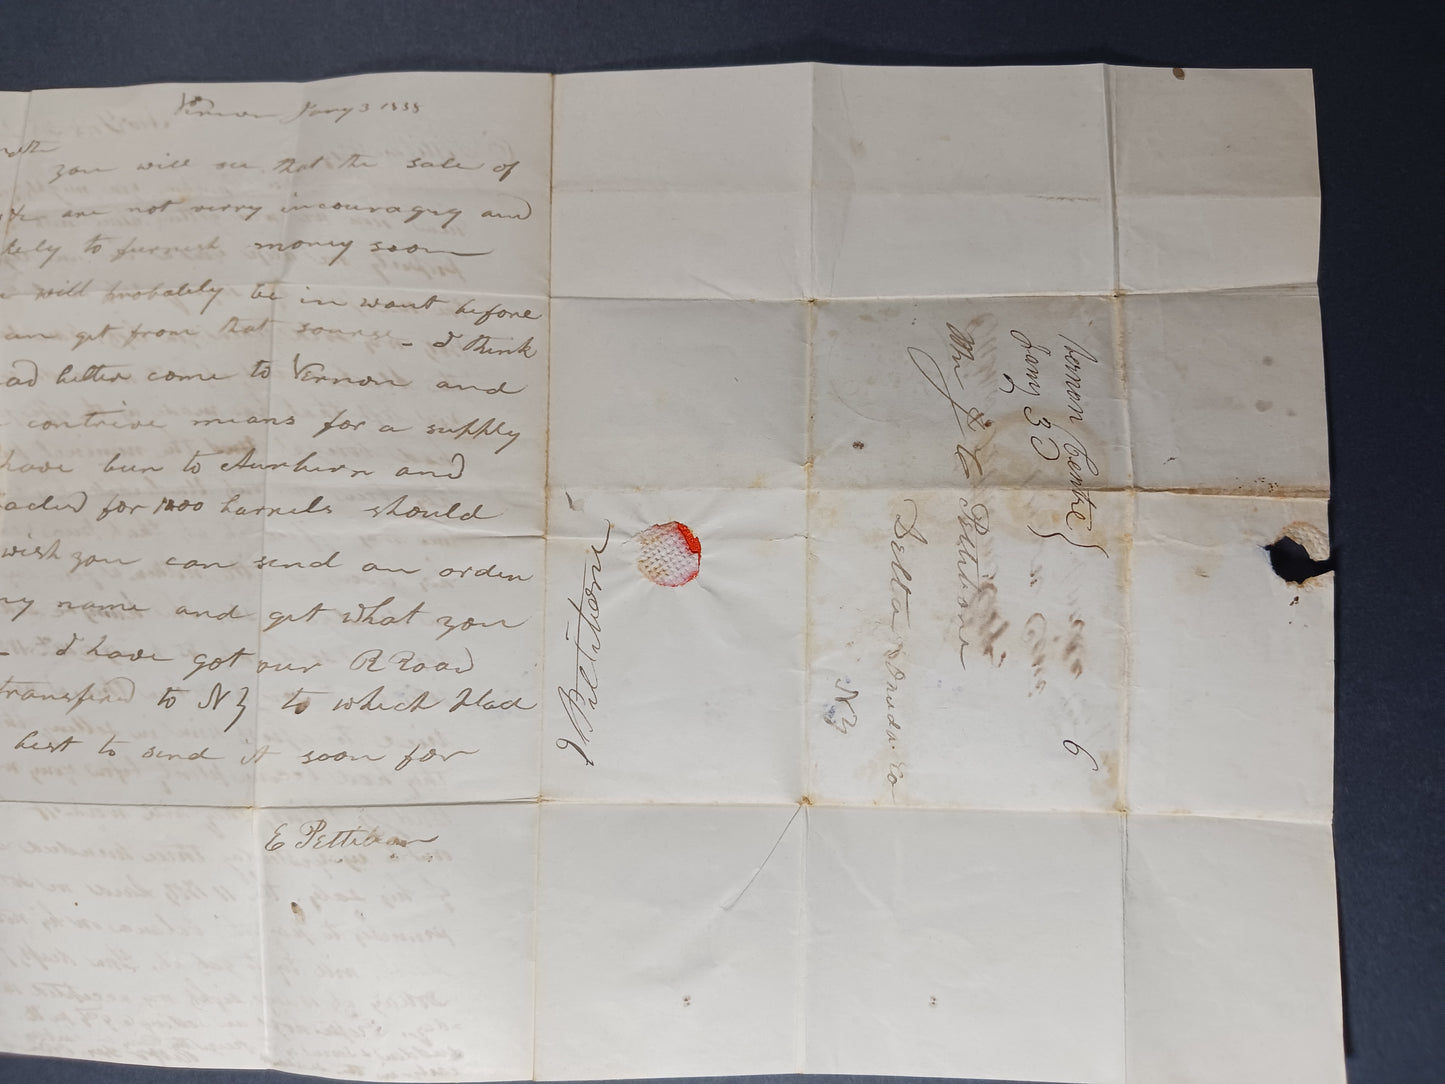 Vernon Jany 3 1838
you will see that the sale of
are not verry incouragng and
kely to furnish money soon
will probably be in want before
an get from that sourse - I think
ad better come to Vernon and
contrive means for a supply
have bun to Aurburn and
for 1200 barrels should
wish you can send an order
my name and get what you
I have got our R Road
transferd to NY to which I had
best to send it soon for
E Pettibone
Pettibone
Vernon Centre }
Jany 3d }
6
Wm & C Pettibone
Dellta Oneida Co
NY